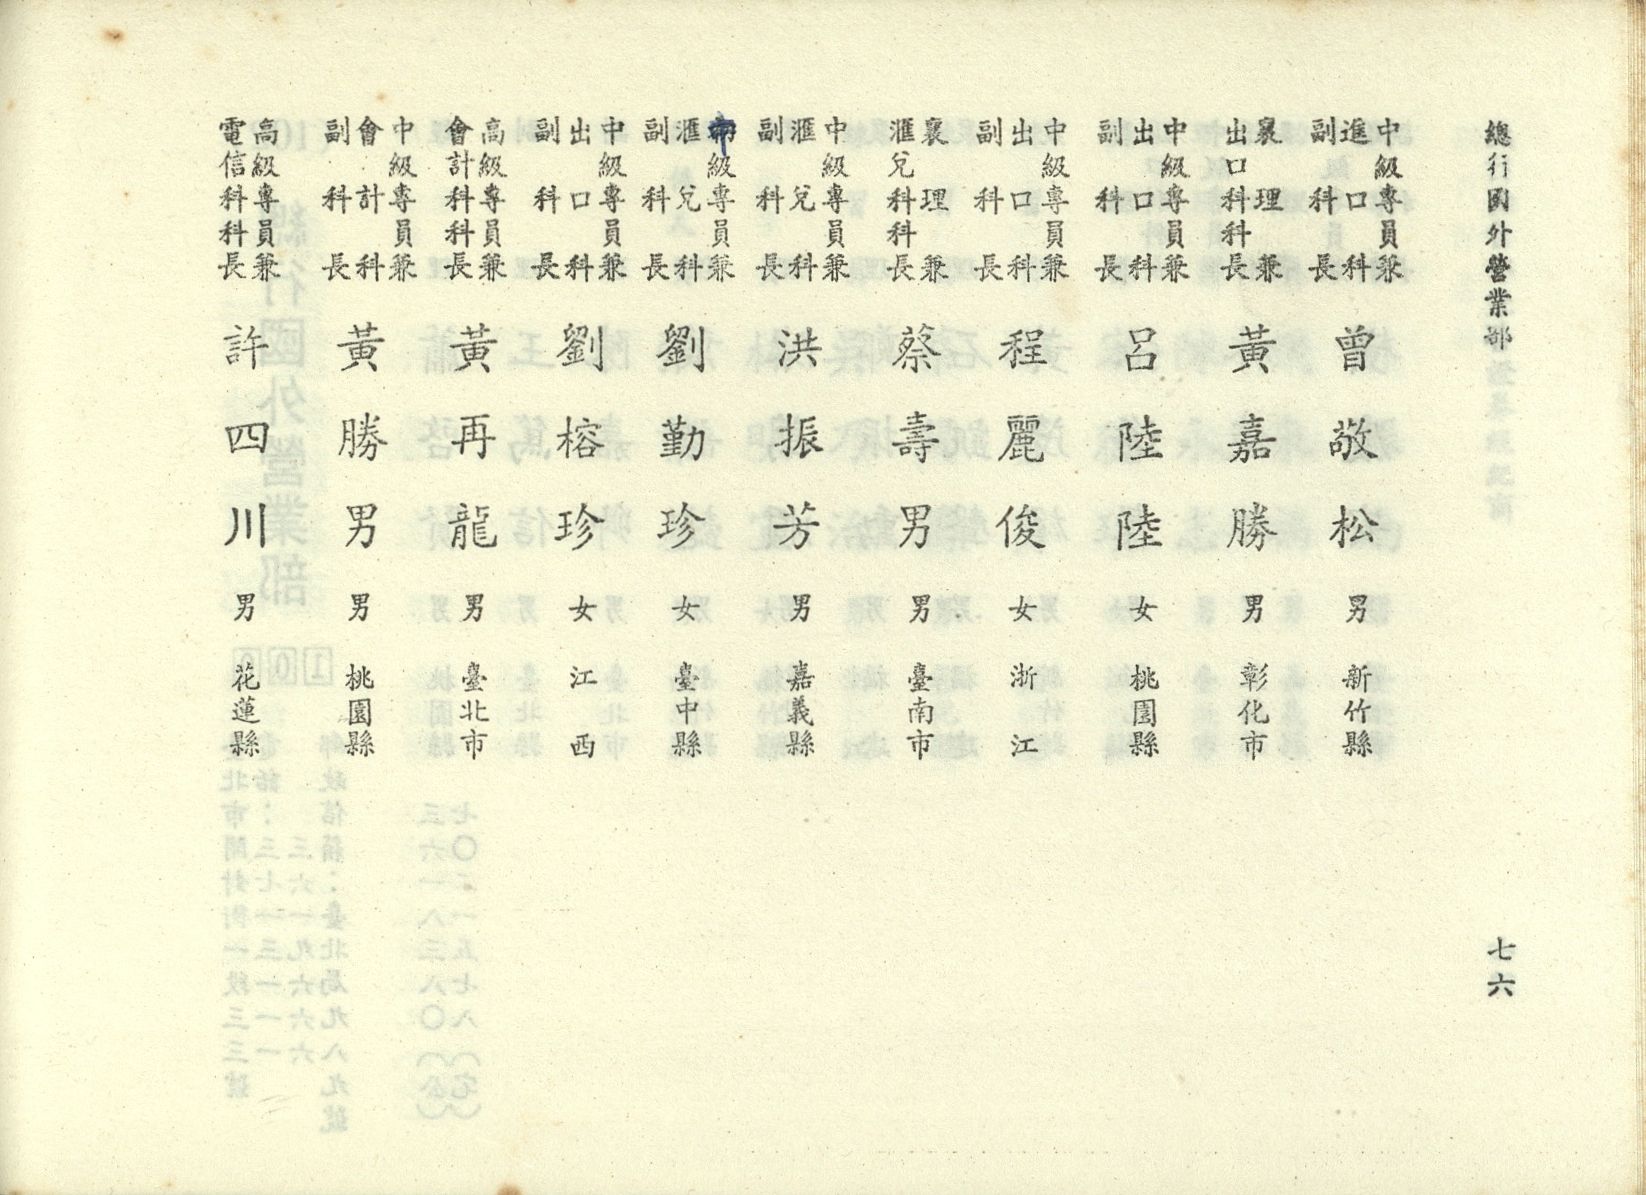 總行國外營業部
七六
中級專員兼進口科副科長 曾敬松 男 新竹縣
襄理兼出口科科長 黃嘉勝 男 彰化市
中級專員兼出口科副科長 呂陸陸 女 桃園縣
中級專員兼出口科副科長 程麗俊 女 浙江
襄理兼滙兌科科長 蔡壽男 男 臺南市
中級專員兼滙兌科副科長 洪振芳 男 嘉義縣
中級專員兼滙兌科副科長 劉勤珍 女 臺中縣
中級專員兼出口科副科長 劉榕珍 女 江西
高級專員兼會計科科長 黃再龍 男 臺北市
中級專員兼會計科副科長 黃勝男 男 桃園縣
高級專員兼電信科科長 許四川 男 花蓮縣